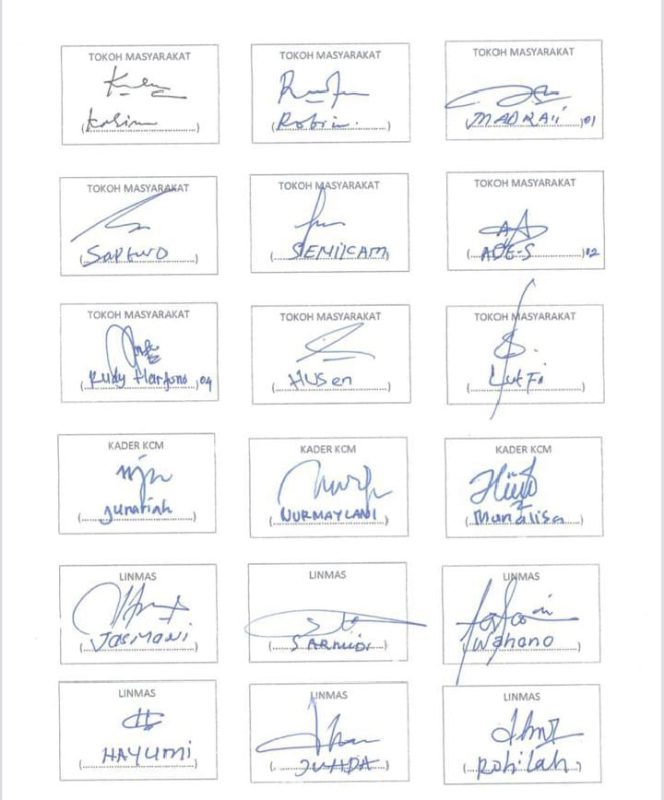 TOKOH MASYARAKAT TOKOH MASYARAKAT TOKOH MASYARAKAT
(Kasim) (Robin.) (MADRA'i) 01
TOKOH MASYARAKAT TOKOH MASYARAKAT TOKOH MASYARAKAT
(SAPTWO) (SEMIJCAM) (ADE-S) 02
TOKOH MASYARAKAT TOKOH MASYARAKAT TOKOH MASYARAKAT
(Rudy Hartono) 04 (HUSen) (LutFi)
KADER KCM KADER KCM KADER KCM
(Junatiah) (NURMAYLANI) (Munalisa)
LINMAS LINMAS LINMAS
(JASMANI) (SARMIDI) (Wahono)
LINMAS LINMAS LINMAS
(HAYUMI) (JUHDA) (Rohilah)